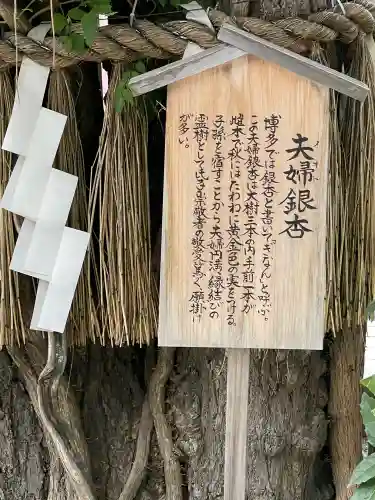 夫婦銀杏
博多では銀杏と書いて「ぎなん」と呼ぶ。
この夫婦銀杏は大樹三本の内手前一本が
雌木で秋にはたわわに黄金色の実をつける。
子孫を宿すことから夫婦円満、縁結びの
霊樹として 崇敬者の敬愛篤く、願掛け
が多い。